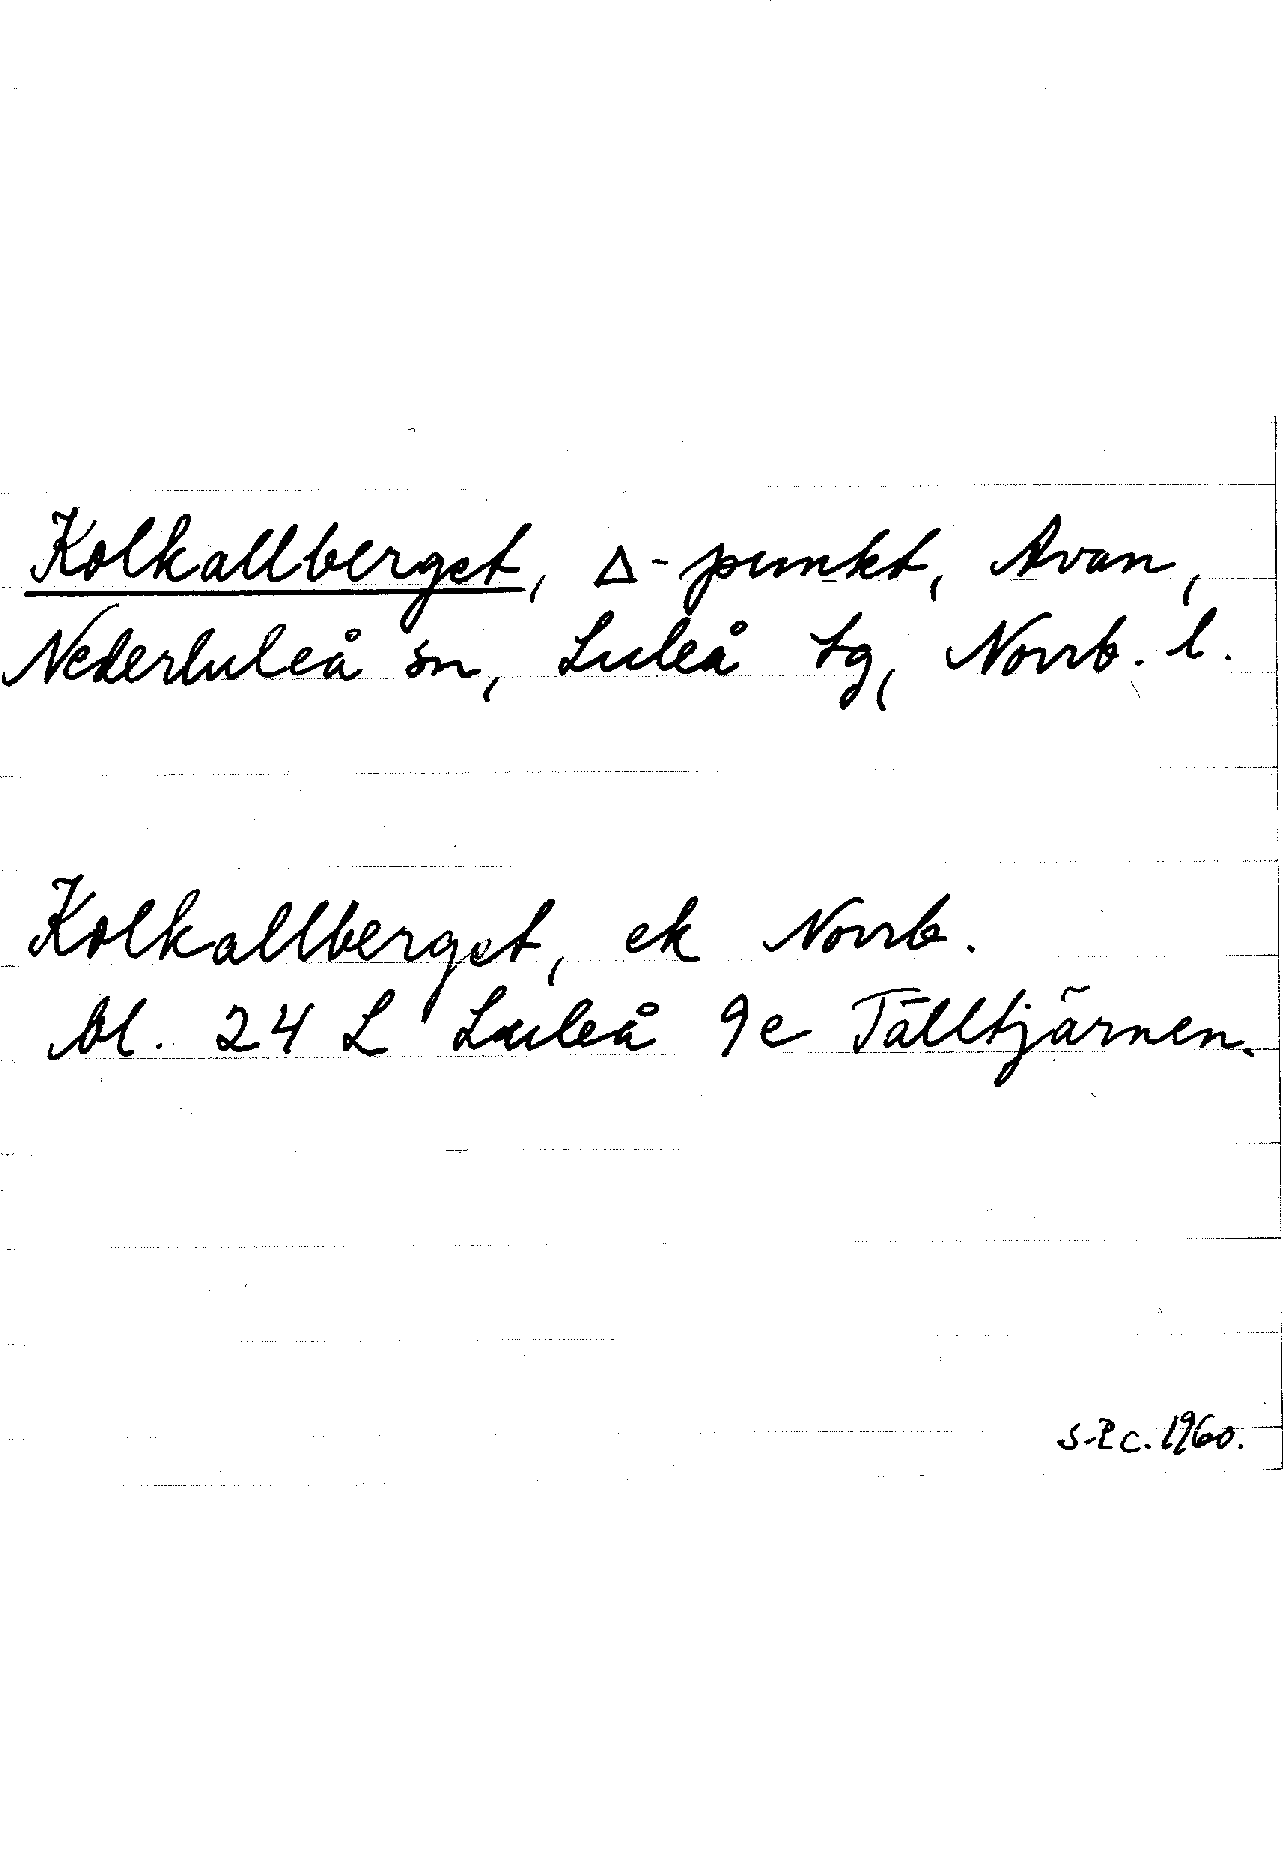 Kolkallberget, Δ-punkt, Avan,
Nederluleå sn, Luleå tg, Norrb. l.
Kolkallberget, ek Norrb.
bl. 24 L Luleå 9e Tälltjärnen.
S-P c. 1960.